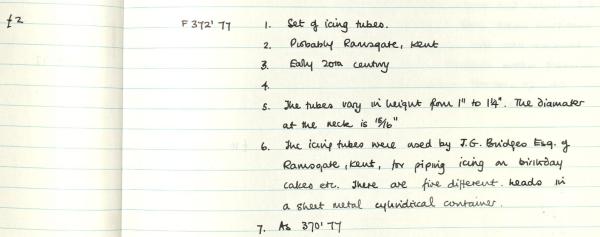 £2
F 372' 77
1. Set of icing tubes.
2. Probably Ramsgate, Kent
3. Early 20th century
4.
5. The tubes vary in height from 1" to 1¼". The diameter
at the neck is 15/16"
6. The icing tubes were used by J.G. Bridges Esq. of
Ramsgate, Kent, for piping icing on birthday
cakes etc. There are five different heads in
a sheet metal cylindrical container.
7. As 370' 77